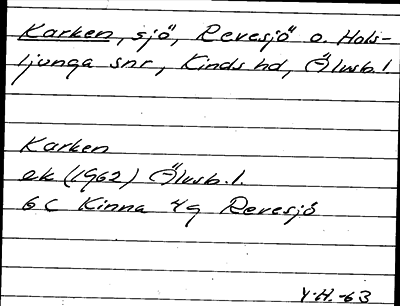 Karken, sjö, Revesjö o. Hols-
ljunga snr, Kinds hd, Älvsb. l.
Karken
ek (1962) Älvsb. l.
6 C Kinna 4g Revesjö
Y.H. -63